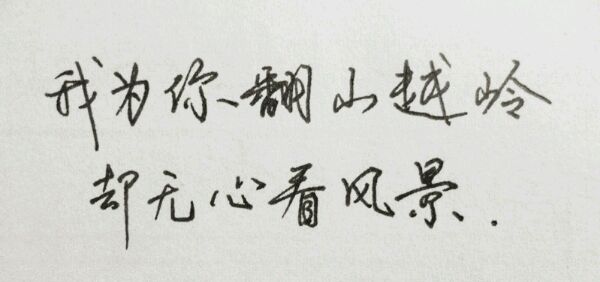 我为你、翻山越岭
却无心看风景.